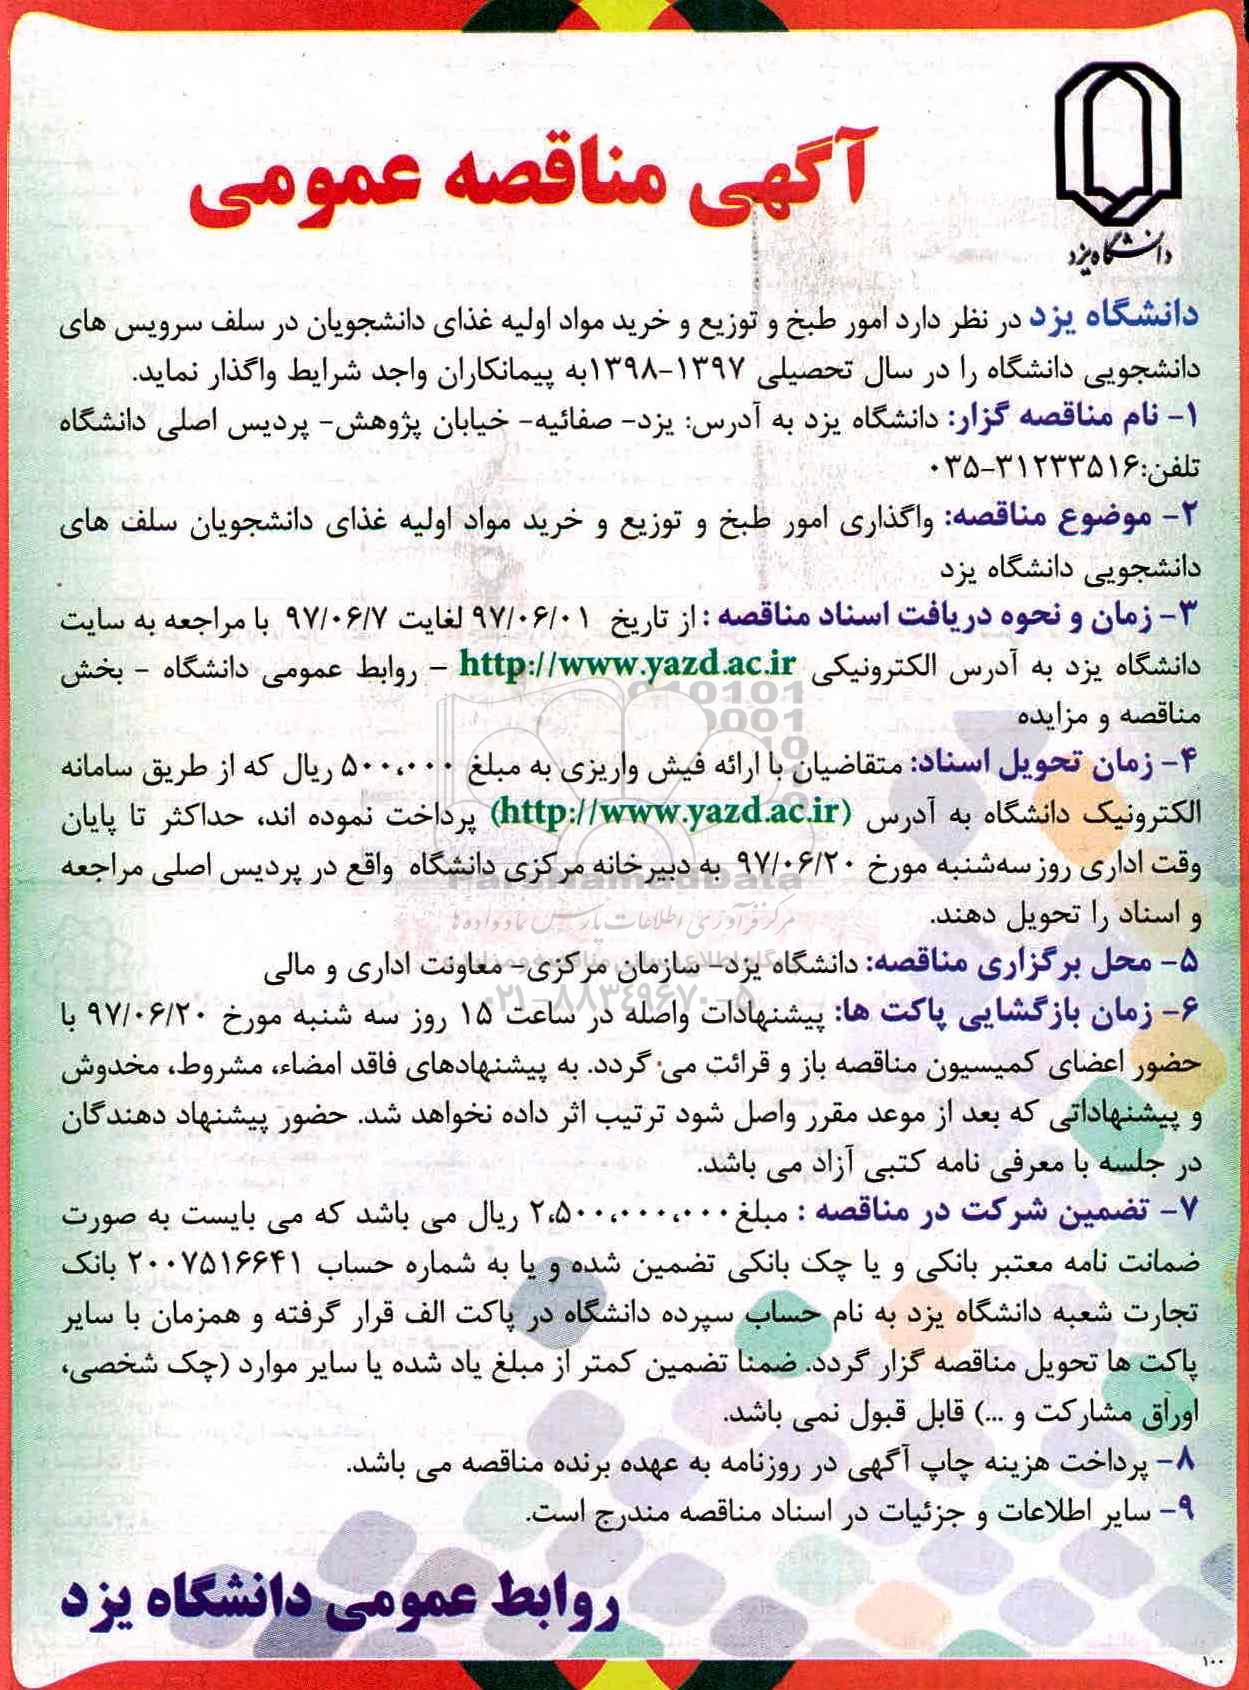 دانشگاه یزد
آگهی مناقصه عمومی
دانشگاه یزد در نظر دارد امور طبخ و توزیع و خرید مواد اولیه غذای دانشجویان در سلف سرویس های
دانشجویی دانشگاه را در سال تحصیلی ۱۳۹۷-۱۳۹۸به پیمانکاران واجد شرایط واگذار نماید.
۱- نام مناقصه گزار: دانشگاه یزد به آدرس: یزد- صفائیه- خیابان پژوهش- پردیس اصلی دانشگاه
تلفن:۳۱۲۳۳۵۱۶-۰۳۵
۲- موضوع مناقصه: واگذاری امور طبخ و توزیع و خرید مواد اولیه غذای دانشجویان سلف های
دانشجویی دانشگاه یزد
۳- زمان و نحوه دریافت اسناد مناقصه : از تاریخ ۹۷/۰۶/۰۱ لغایت ۹۷/۰۶/۷ با مراجعه به سایت
دانشگاه یزد به آدرس الکترونیکی http://www.yazd.ac.ir – روابط عمومی دانشگاه - بخش
مناقصه و مزایده
۴- زمان تحویل اسناد: متقاضیان با ارائه فیش واریزی به مبلغ ۵۰۰،۰۰۰ ریال که از طریق سامانه
الکترونیک دانشگاه به آدرس (http://www.yazd.ac.ir) پرداخت نموده اند، حداکثر تا پایان
وقت اداری روز سه‌شنبه مورخ ۹۷/۰۶/۲۰ به دبیرخانه مرکزی دانشگاه واقع در پردیس اصلی مراجعه
و اسناد را تحویل دهند.
ParsNamadData
مرکز فرآوری اطلاعات پارس نماد داده ها
۵- محل برگزاری مناقصه: دانشگاه یزد- سازمان مرکزی- معاونت اداری و مالی
۰۲۱-۸۸۳۴۹۶۷۰-۵
۶- زمان بازگشایی پاکت ها: پیشنهادات واصله در ساعت ۱۵ روز سه شنبه مورخ ۹۷/۰۶/۲۰ با
حضور اعضای کمیسیون مناقصه باز و قرائت می گردد. به پیشنهادهای فاقد امضاء، مشروط، مخدوش
و پیشنهاداتی که بعد از موعد مقرر واصل شود ترتیب اثر داده نخواهد شد. حضور پیشنهاد دهندگان
در جلسه با معرفی نامه کتبی آزاد می باشد.
۷- تضمین شرکت در مناقصه : مبلغ۲،۵۰۰،۰۰۰،۰۰۰ ریال می باشد که می بایست به صورت
ضمانت نامه معتبر بانکی و یا چک بانکی تضمین شده و یا به شماره حساب ۲۰۰۷۵۱۶۶۴۱ بانک
تجارت شعبه دانشگاه یزد به نام حساب سپرده دانشگاه در پاکت الف قرار گرفته و همزمان با سایر
پاکت ها تحویل مناقصه گزار گردد. ضمنا تضمین کمتر از مبلغ یاد شده یا سایر موارد (چک شخصی،
اوراق مشارکت و ...) قابل قبول نمی باشد.
۸- پرداخت هزینه چاپ آگهی در روزنامه به عهده برنده مناقصه می باشد.
۹- سایر اطلاعات و جزئیات در اسناد مناقصه مندرج است.
روابط عمومی دانشگاه یزد
۱۰۰